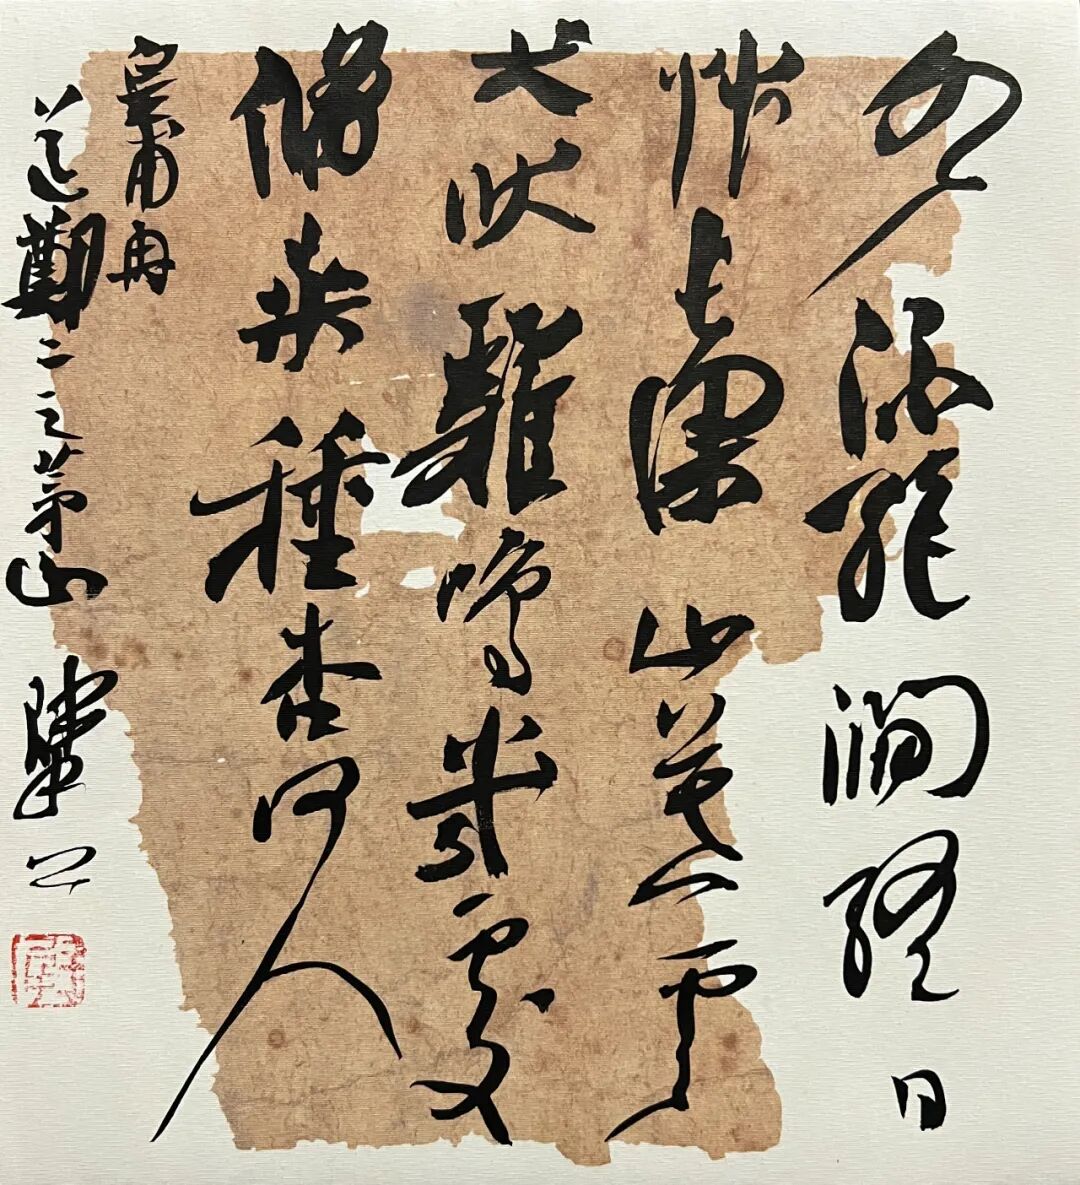 水流絕澗終日
艸長深山暮雲
犬吠雞鳴幾處
脩桑種杏何人
皇甫冉
送鄭二之茅山